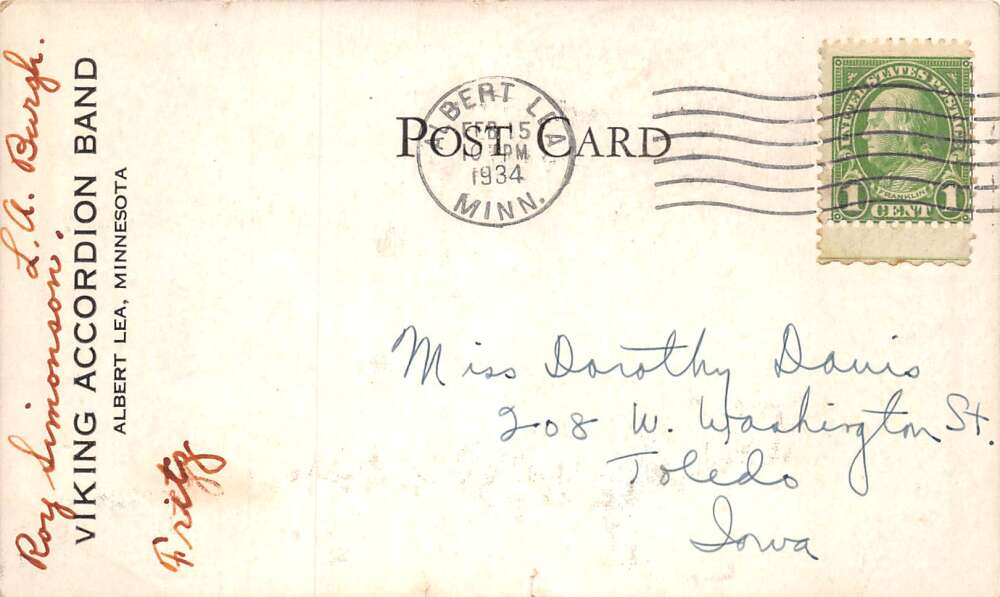 Roy Simonson. L.A. Burgh.
VIKING ACCORDION BAND
ALBERT LEA, MINNESOTA
Fritz
POST CARD
ALBERT LEA
FEB 15
PM
1934
MINN.
UNITED STATES POSTAGE
FRANKLIN
1 CENT 1
Miss Dorothy Davis
208 W. Washington St.
Toledo
Iowa